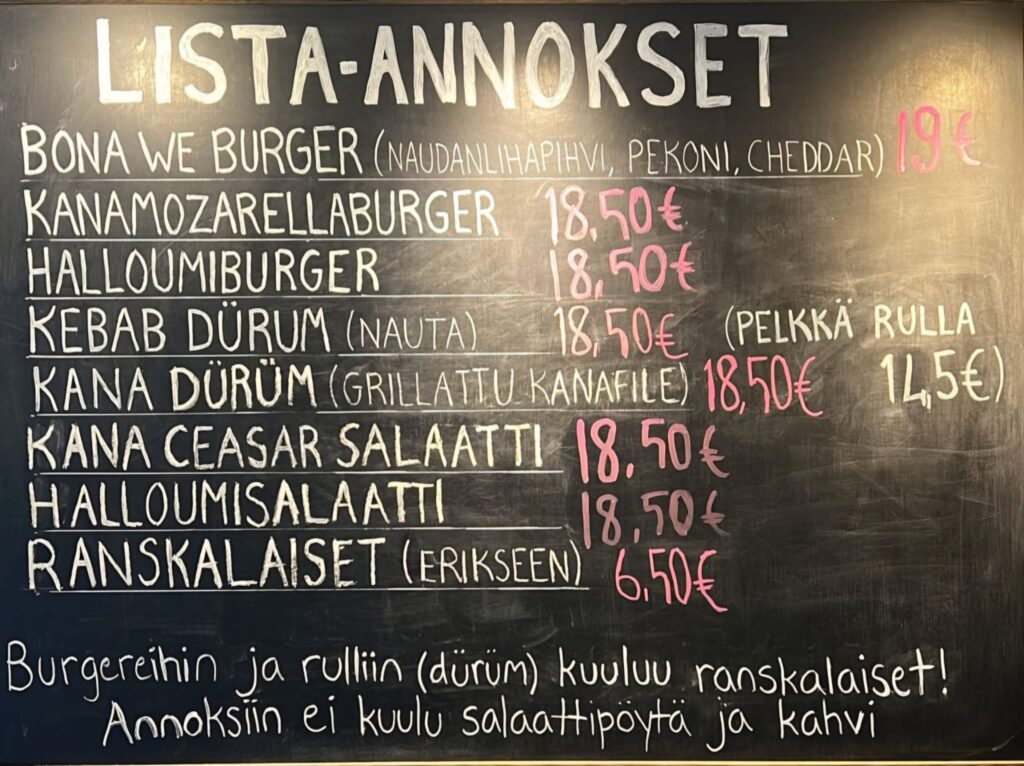 LISTA-ANNOKSET
BONA WE BURGER (NAUDANLIHAPIHVI, PEKONI, CHEDDAR) 19 €
KANAMOZARELLABURGER 18,50€
HALLOUMIBURGER 18,50€
KEBAB DÜRUM (NAUTA) 18,50€ (PELKKÄ RULLA
KANA DÜRÜM (GRILLATTU KANAFILE) 18,50€ 14,5€)
KANA CEASAR SALAATTI 18.50€
HALLOUMISALAATTI 18,50€
RANSKALAISET (ERIKSEEN) 6,50€
Burgereihin ja rulliin (dürüm) kuuluu ranskalaiset!
Annoksiin ei kuulu salaattipöytä ja kahvi